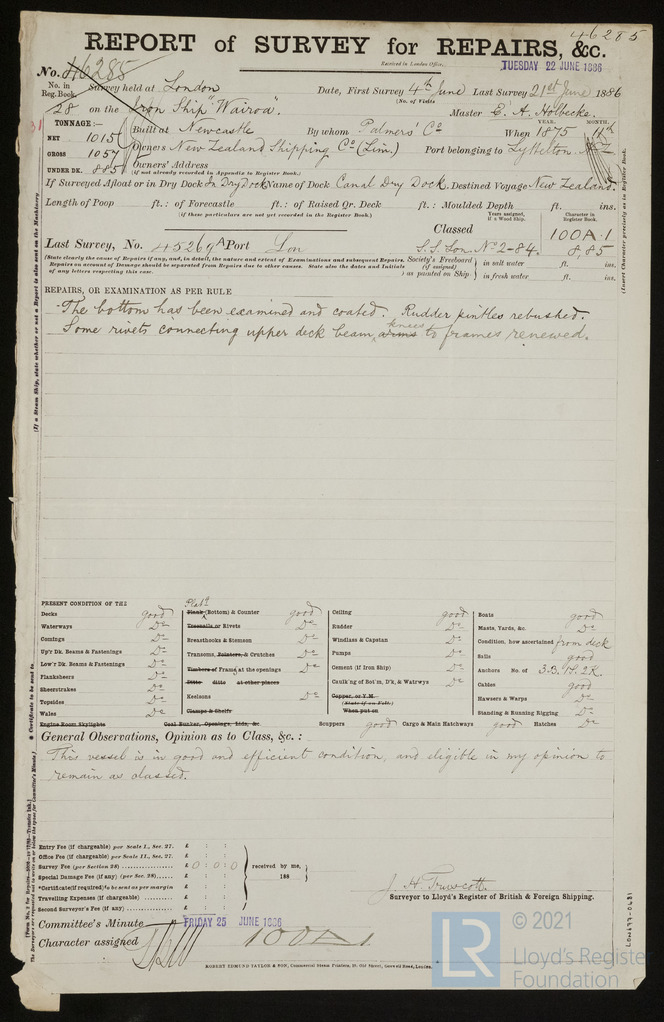 46285
REPORT of SURVEY for REPAIRS, &c.
Received in London Office, TUESDAY 22 JUNE 1886
No. 46285
No. in Reg. Book. Survey held at London Date, First Survey 4th June Last Survey 21st June 1886
(No. of Visits
28 on the Iron Ship "Wairoa". Master E. A. Holbecke.
TONNAGE:—
NET 1015
GROSS 1057
UNDER DK. 885
Built at Newcastle By whom Palmers' Co YEAR. MONTH. When 1875 11th
Owners New Zealand Shipping Co (Lim.) Port belonging to Lyttelton. N.Z.
Owners' Address
(if not already recorded in Appendix to Register Book.)
If Surveyed Afloat or in Dry Dock In Dry Dock Name of Dock Canal Dry Dock. Destined Voyage New Zealand.
Length of Poop ft.: of Forecastle ft.: of Raised Qr. Deck ft.: Moulded Depth ft. ins.
(If these particulars are not yet recorded in the Register Book.)
Years assigned, if a Wood Ship. Character in Register Book.
Classed 100A.1
Last Survey, No. 45269A Port Lon S.S. Lon. No 2-84. 8,85
(State clearly the cause of Repairs if any, and, in detail, the nature and extent of Examinations and subsequent Repairs.
Repairs on account of Damage should be separated from Repairs due to other causes. State also the dates and Initials
of any letters respecting this case.
Society's Freeboard (if assigned) as painted on Ship } in salt water ft. ins.
in fresh water ft. ins.
(Insert Character precisely as in Register Book.
REPAIRS, OR EXAMINATION AS PER RULE
The bottom has been examined and coated. Rudder pintles rebushed.
Some rivets connecting upper deck beam arms knees to frames renewed.
(If a Steam Ship, state whether or not a Report is also sent on the Machinery
PRESENT CONDITION OF THE
Decks good
Waterways Do
Comings Do
Up'r Dk. Beams & Fastenings Do
Low'r Dk. Beams & Fastenings Do
Planksheers Do
Sheerstrakes Do
Topsides Do
Wales Do
Engine Room Skylights
Plat'g
Plank (Bottom) & Counter good
Treenails or Rivets Do
Breasthooks & Stemson Do
Transoms, Pointers, & Crutches Do
Timbers of Frame at the openings Do
Ditto ditto at other places
Keelsons Do
Clamps & Shelfs
Coal Bunker, Openings, lids, &c.
Ceiling good
Rudder Do
Windlass & Capstan Do
Pumps Do
Cement (if Iron Ship) Do
Caulk'ng of Bot'm, D'k, & Watrwys Do
Copper, or Y.M.
(State if on Felt.)
When put on
Scuppers good Cargo & Main Hatchways good Hatches Do
Boats good
Masts, Yards, &c. Do
Condition, how ascertained from deck
Sails good
Anchors No. of 3B. 1S. 2K.
Cables good
Hawsers & Warps Do
Standing & Running Rigging Do
General Observations, Opinion as to Class, &c. :
This vessel is in good and efficient condition, and eligible in my opinion to
remain as classed.
* Certificate to be sent to
Entry Fee (if chargeable) per Scale I., Sec. 27. £ : :
Office Fee (if chargeable) per Scale II., Sec. 27. £ : :
Survey Fee (per Section 28) £ 0 : 0 : 0
Special Damage Fee (if any) (per Sec. 28) £ : :
*Certificate (if required) to be sent as per margin £ : :
Travelling Expenses (if chargeable) £ : :
Second Surveyor's Fee (if any) £ : :
received by me,
188
Surveyor to Lloyd's Register of British & Foreign Shipping.
Committee's Minute FRIDAY 25 JUNE 1886
Character assigned 100A1
ROBERT EDMUND TAYLOR & SON, Commercial Steam Printers, 19, Old Street, Goswell Road, London.
LR
© 2021
Lloyd's Register
Foundation